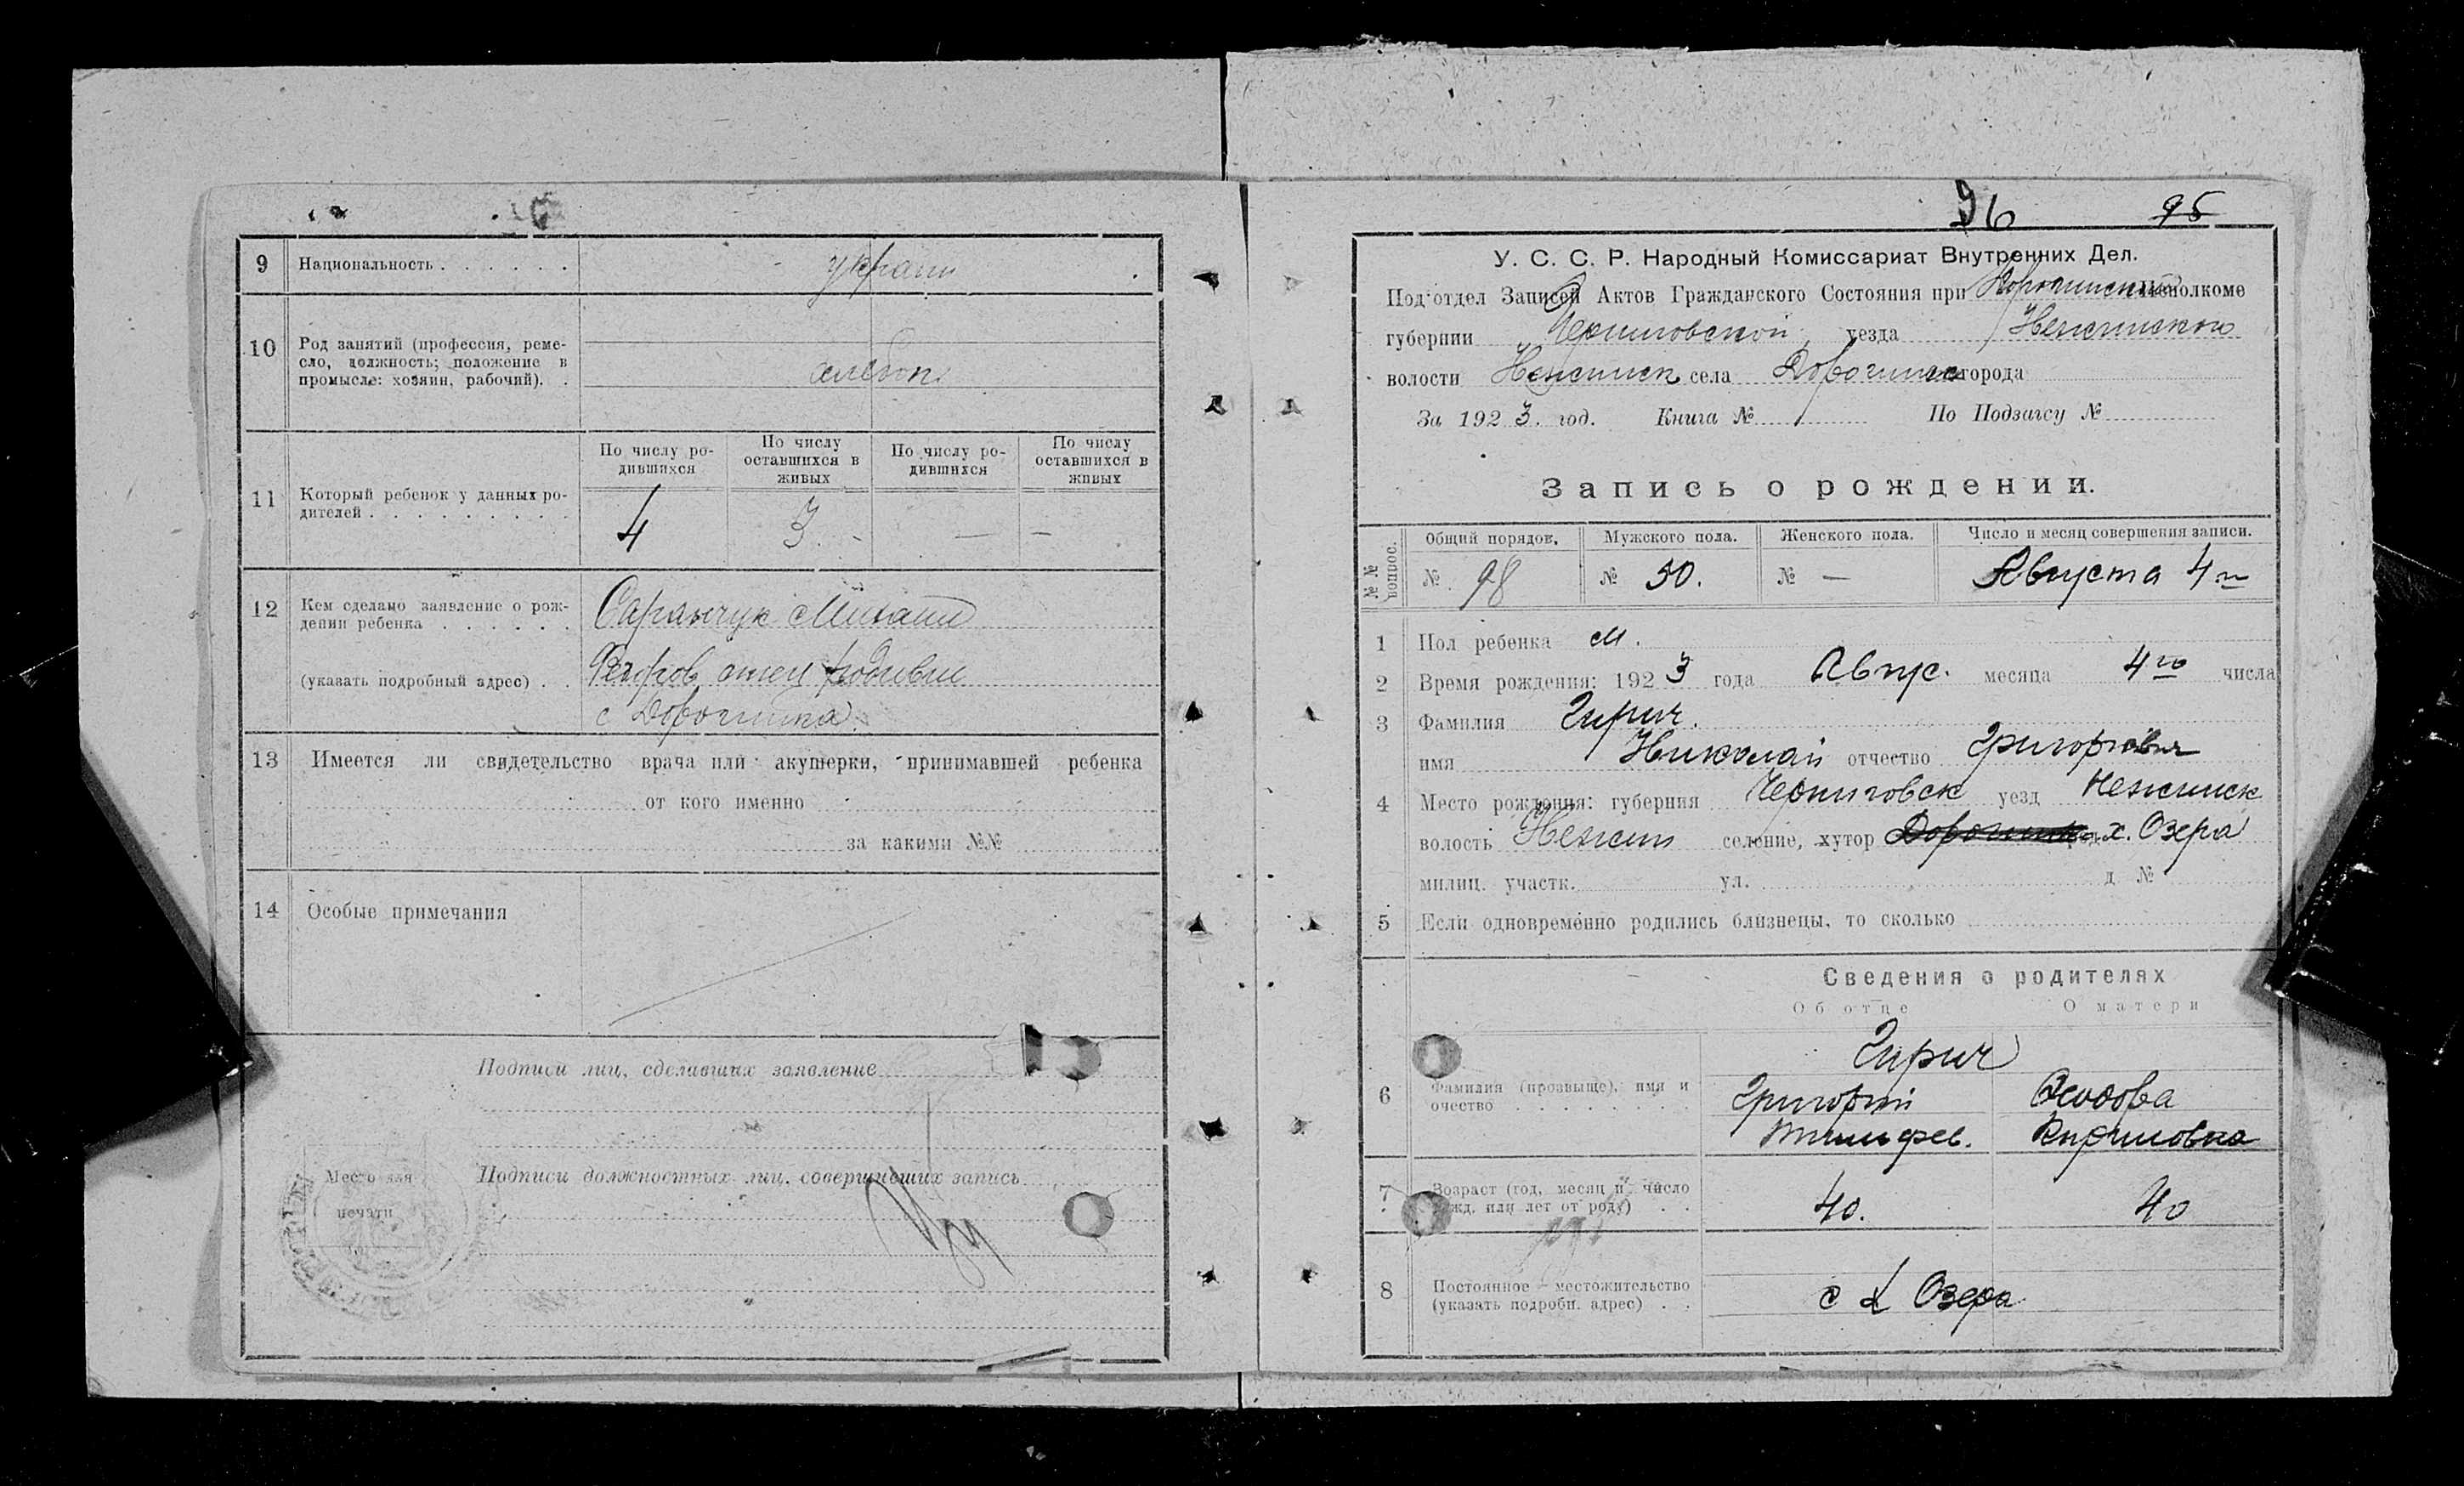 9 Национальность . . . . . . украин
10 Род занятий (профессия, реме-
сло, должность; положение в
промысле: хозяин, рабочий). . хлебоп.
По числу ро-
дившихся
По числу
оставшихся в
живых
По числу ро-
дившихся
По числу
оставшихся в
живых
11 Который ребенок у данных ро-
дителей . . . . . . . . .
4 3 — —
12 Кем сделано заявление о рож-
дении ребенка . . . . . .
Саранчук Михаил
(указать подробный адрес) . .
отец
с Дорогинка
13 Имеется ли свидетельство врача или акушерки, принимавшей ребенка
от кого именно
за какими №№
14 Особые примечания
Подписи лиц, сделавших заявление
Место для
печати
Подписи должностных лиц, совершивших запись
96 95
У. С. С. Р. Народный Комиссариат Внутренних Дел.
Под'отдел Записей Актов Гражданского Состояния при исполкоме
губернии Черниговской уезда Нежинского
волости Нежинск села Дорогинка города
За 1923. год. Книга № По Подзагсу №
Запись о рождении.
№№ вопрос.
Общий порядов. Мужского пола. Женского пола. Число и месяц совершения записи.
№ 98 № 50. № — Августа 4го
1 Пол ребенка м.
2 Время рождения: 1923 года Авгус. месяца 4го числа
3 Фамилия Гирич.
имя Николай отчество Григориевич
4 Место рождения: губерния Черниговск уезд Нежинск
волость Нежин селение, хутор Дорогинка х. Озера
милиц. участк. ул. д №
5 Если одновременно родились близнецы, то сколько
Сведения о родителях
Об отце О матери
Гирич
6 Фамилия (прозвыще), имя и
очество . . . . . . . .
Григорий
Кириловна
7 Возраст (год, месяц и число
рожд. или лет от роду) . .
40. 40
8 Постоянное местожительство
(указать подробн. адрес) . .
Озера